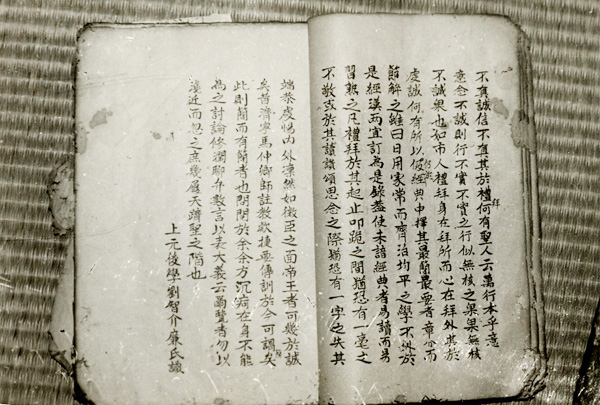 不真誠信不真其於禮拜何有聖人云萬行本乎意
意念不誠則行不實不實之行似無核之果果無核
不誠果也如市人禮拜身在拜所而心在拜外其於
虔誠何有所以於經典中擇其最簡最要者章分而
節解之雖曰日用家常而齊治均平之學不外於
是經漢而宜訂為是錄蓋使未諳經典者易讀而易
習熟之凡禮拜於其起止叩跪之間猶恐有一毫之
不敬或於其讀讚頌思念之際猶恐有一字之失其
端恭虔惕內外凜然如微臣之面帝王者可幾於誠
矣昔濟寧馬仲卿師註教款捷要傳訓於今可謂矣
此則簡而有簡者也問於余余方沉痾在身不能
為之討論修潤聊弁數言以表大義云爾覽者勿以
淺近而忽之庶幾履天躋聖之階也
上元後學劉智介廉氏識